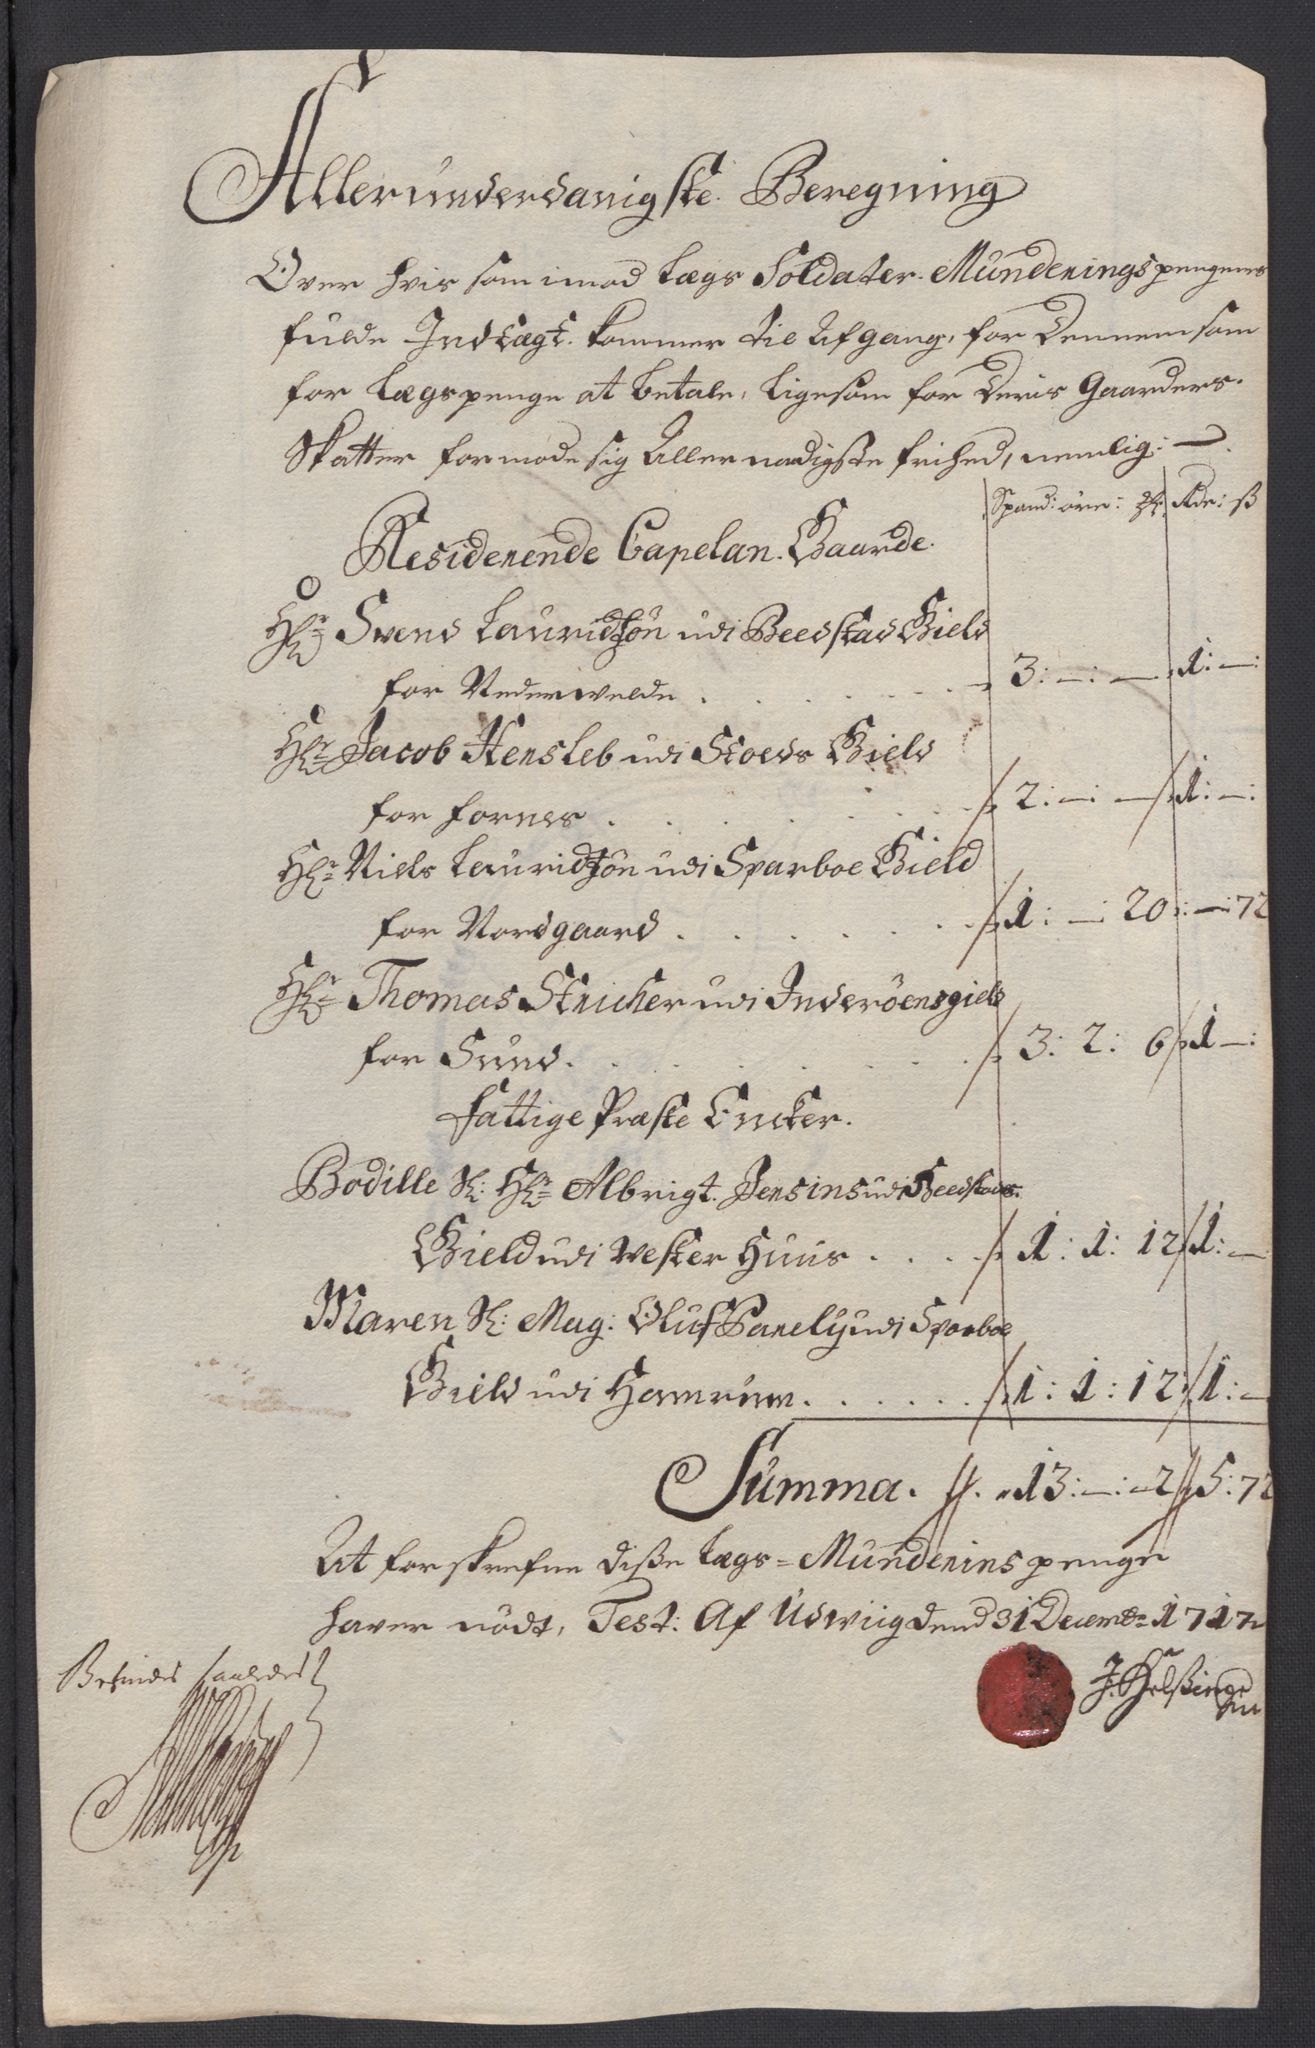 Allerunderdanigste Beregning
Over hvis som imod Lægs Soldater Munderings pengenes
fulde Indtægt kommer til Afgang, for dennem som
for Lægspenge at betale, ligesom for deris Gaarders
Skatter formode sig Allernaadigste frihed, nemlig: —
Spand: öre: Rdr: ß
Residerende Capelan Gaarde.
Hr Svend Lauridtzön udi Beedstad Gield
for Nedervelde . . . 3: —: — 1: —:
Hr Jacob Hersleb udi Stoeds Gield
for Fornes . . . 2: —: — 1: —:
Hr Niels Lauridtzön udi Sparboe Gield
for Nordgaard . . . 1: —: 20: —: 72
Hr Thomas Stricher udi Inderöens gield
for Sund . . . 3: 2: 6 1 —:
Fattige Præste Encker.
Bodille Sl: Hr Albrigt Jensins udi Beedstad
Gield udi Vester Huus . . . 1: 1: 12 1: —
Maren Sl: Mag: Oluf udi Sparboe
Gield udi Hamrum . . . 1: 1: 12 1: —
Summa. 13: —: 2 5: 72
At forskrefne diße Lægs-Munderins penge
haver nödt, Test: Af Udviig dend 31 Decembr 1717
Befindes saaledes